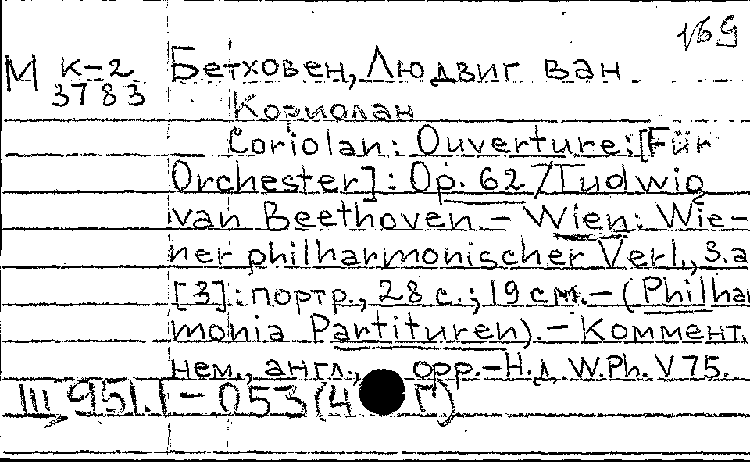 169
М К-2 Бетховен, Людвиг ван
3783
Кориолан
Coriolan: Ouverture: [Für
Orchester]: Op. 62 / Ludwig
van Beethoven. – Wien: Wie-
ner philharmonischer Verl., S.a
[3]: портр., 28 с.; 19 см. – (Philhar
monia Partituren). – Коммент.
нем., англ., фр. – Н.д. W.Ph.V 75.
III 951.1 – 053(4 Г)